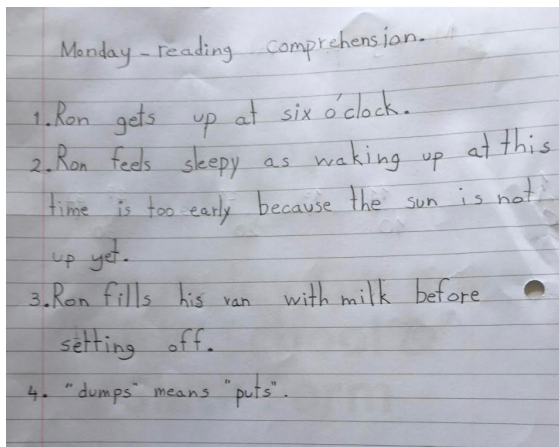 Monday - reading comprehension.
1. Ron gets up at six o'clock.
2. Ron feels sleepy as waking up at this
time is too early because the sun is not
up yet.
3. Ron fills his van with milk before
setting off.
4. "dumps" means "puts".